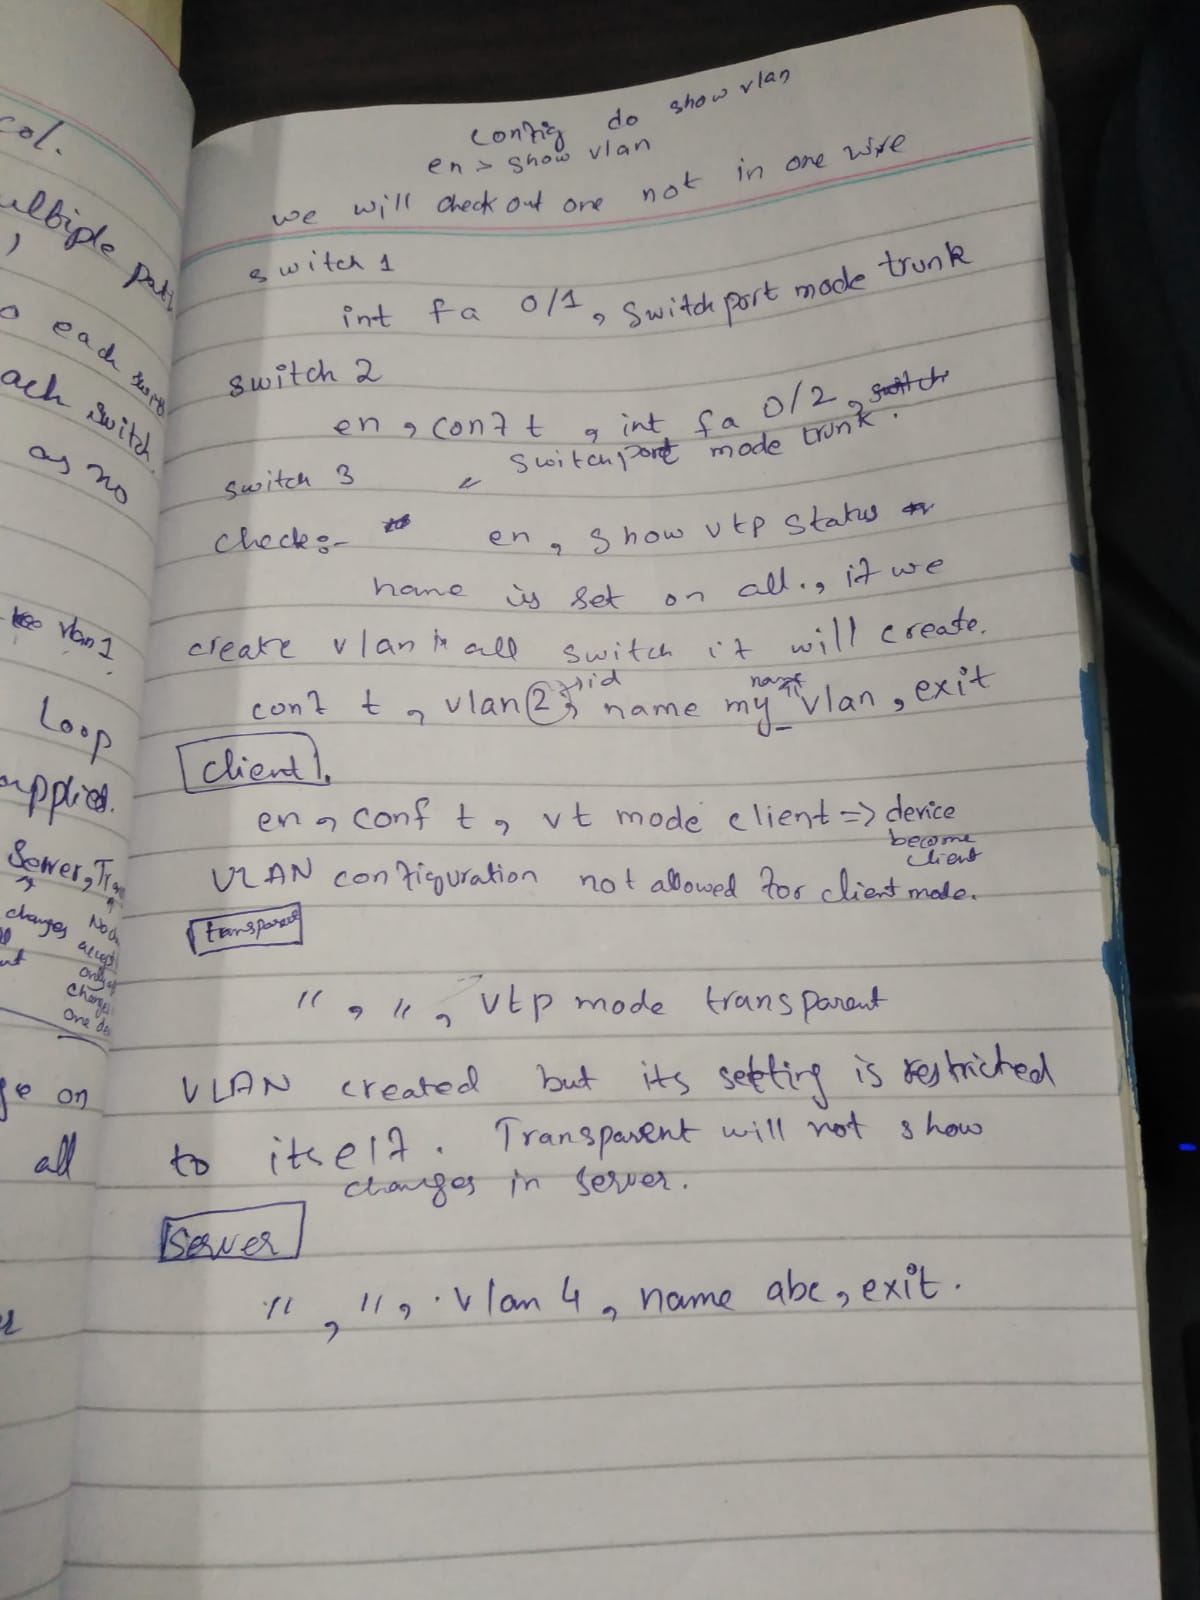 col.
ultiple pat
,
o each swit
ach switch.
as no
vlan 1
Loop
applied.
Server, Tra
changes No ch
ll accept
nt only
changes
one de
ge on
all
config do show vlan
en > show vlan
we will check out one not in one wire
switch 1
int fa 0/1, switchport mode trunk
switch 2
en, conf t, int fa 0/2, switch
switchport mode trunk.
switch 3 "
check:- en, show vtp status
name is set on all., if we
create vlan in all switch it will create.
conf t, vlan 2, → id name my_vlan, exit
name
Client 1.
en, conf t, vt mode client => device
become
client
VLAN configuration not allowed for client mode.
transparent
", ", vtp mode transparent
VLAN created but its setting is restricted
to itself. Transparent will not show
changes in server.
Server
", ", . vlan 4, name abc, exit.